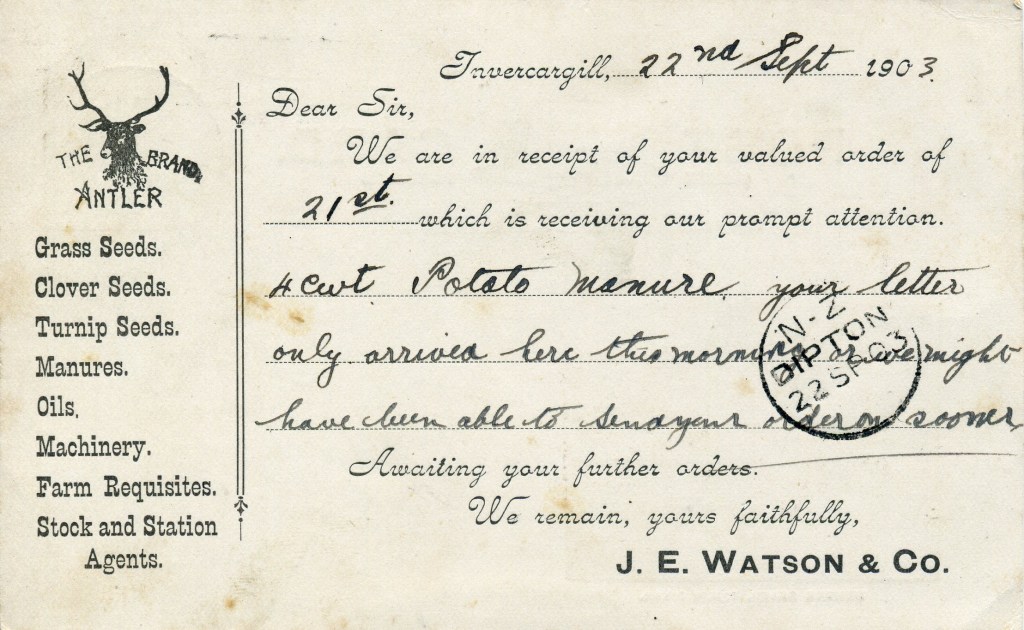 THE ANTLER BRAND.
Grass Seeds.
Clover Seeds.
Turnip Seeds.
Manures.
Oils,
Machinery.
Farm Requisites.
Stock and Station
Agents.
Invercargill, 22nd Sept 1903.
Dear Sir,
We are in receipt of your valued order of
21st. which is receiving our prompt attention.
4 cwt Potato Manure. your letter
only arrived here this morning or we might
have been able to send your order on sooner
N-Z
DIPTON
22 SP 03
Awaiting your further orders.
We remain, yours faithfully,
J. E. WATSON & CO.